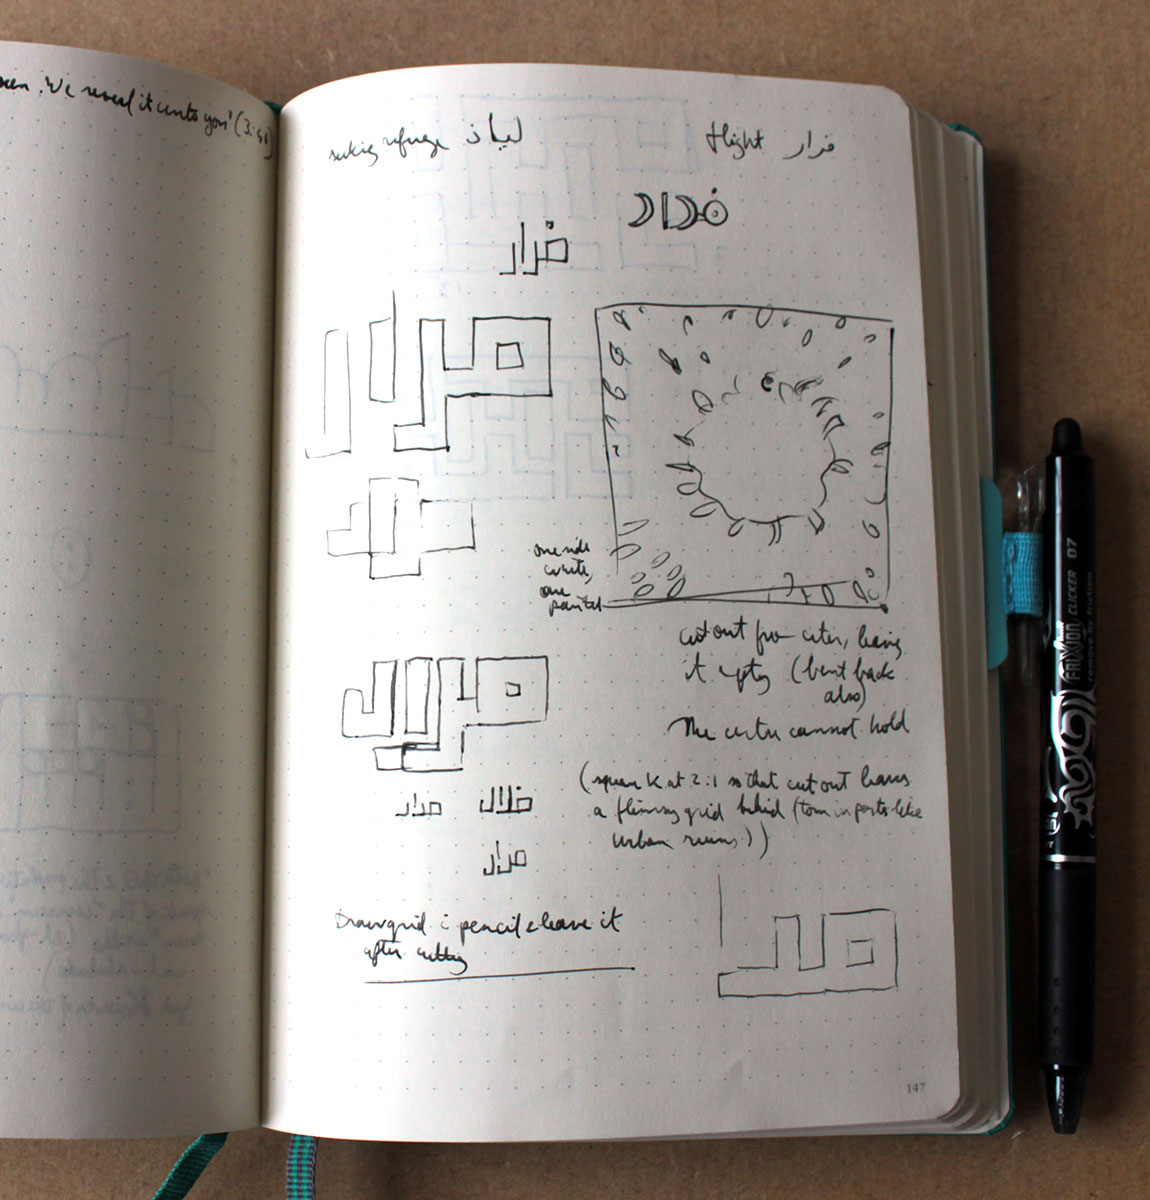 een. We reveal it unto you' (3:41)
seeking refuge لياذ
flight فرار
فرار
فرار
one side
white,
one
painted
cut out from center, leaving
it empty (bent back
also)
The centre cannot hold
(square K at 2:1 so that cut out leaves
a flimsy grid behind (torn in parts like
urban ruins))
فرار
Draw grid in pencil & leave it
after cutting
147
FRIXION CLICKER 07
remove by friction